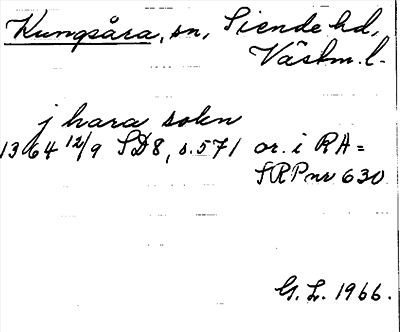 Kungsåra, sn, Siende hd,
Västm. l.
j hara sokn
1364 12/9 SD8, s. 571 or. i RA =
SRP nr 630
G. L. 1966.